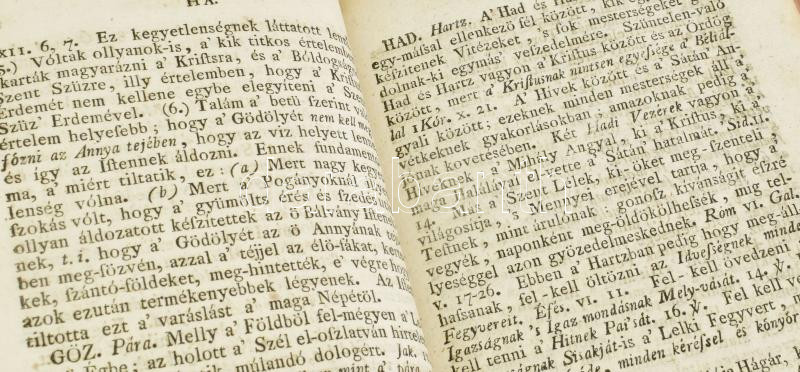 HA.
XII. 6, 7. Ez kegyetlenségnek láttatott
5.) Vólták ollyanok-is, a' kik titkos értelemb
karták magyarázni a' Kriſtsra, és a' Bóldogs
Szent Szűzre, illy értelemben, hogy a' Kriſt
Erdemét nem kellene egybe elegyíteni a' Sze
Szűz' Erdemével. (6.) Talám a' betü ſzerint val
értelem helyeſebb; hogy a' Gödölyét nem kell me
főzni az Annya tejében, hogy az víz helyett le
és így az Iſtennek áldozni. Ennek fundamentu
ma, a miért tiltatik, ez: (a) Mert nagy kegye
lenség vólna. (b) Mert a' Pogányoknál
szokás vólt, hogy a' gyümőlts érés és ſzedés
ollyan áldozatott kéſzítettek az ő Bálvány Iſte
nek, t. i. hogy a' Gödölyét az ő Annyának te
ben meg-főzvén, azzal a' téjjel az élő-fákat, ker
kek, ſzántó-földeket, meg-hintették, e' végre hog
azok ezután termékenyebbek légyenek. Az Iſ
tiltotta ezt a' varáslást a' maga Népétől.
GŐZ. Pára. Melly a' Földből fel-mégyen a' L
Égbe; az holott a' Szél el-oſzlatván hirtele
múlandó dologért. Jak.
HAD. Hartz. A' Had és Ha
egy-máſſal ellenkező fél között, kik eg
kéſzítenek Vitézeket, 's fok meſterségeket g
dolnak-ki egymás' veſzedelmére. Szüntelen-való
Had és Hartz vagyon a' Kriſtus között és az Ördög
között, mert a' Kriſtusnak nintsen egyeſſége a' Béliál-
lal 1 Kór. X. 21. A' Hívek között és a' Sátán' An-
gyali között; ezeknek minden meſterségek áll a'
vétkeknek gyakorlásokban; amazoknak pedig a'
oknak követéſében. Két Hadi Vezérek vagyon a'
Híveknek, a' Mihály Angyal, ki a' Kriſtus, ki a'
maga Halálával el-vette a' Sátán' hatalmát. Sid. II.
14. Más a' Szent Lélek, ki-őket meg-ſzenteli
világosítja, 's Mennyei erejével tartja, hogy a'
Teſtnek, mint árulónak; gonoſz kívánságit eſzré
vegyék, naponként meg-öldökölheſſék, míg tel-
lyeséggel azon győzedelmeskednek. Róm VI. Gal.
V. 17-26. Ebben a' Hartzban pedig hogy meg-áll
haſſanak, fel-kell öltözni az Idveſségnek minden
Fegyvereit. Éfés. VI. 11. Fel-kell övedzeni
Igazságnak 's Igaz mondásnak Mely-vását. 14. V.
kell tenni a' Hitnek Pai'sát. 16. V. Fel kell ve
ságnak Siſakját-is a' Lelki Fegyvert, m
minden kéréſſel és könyör
Hágár, k